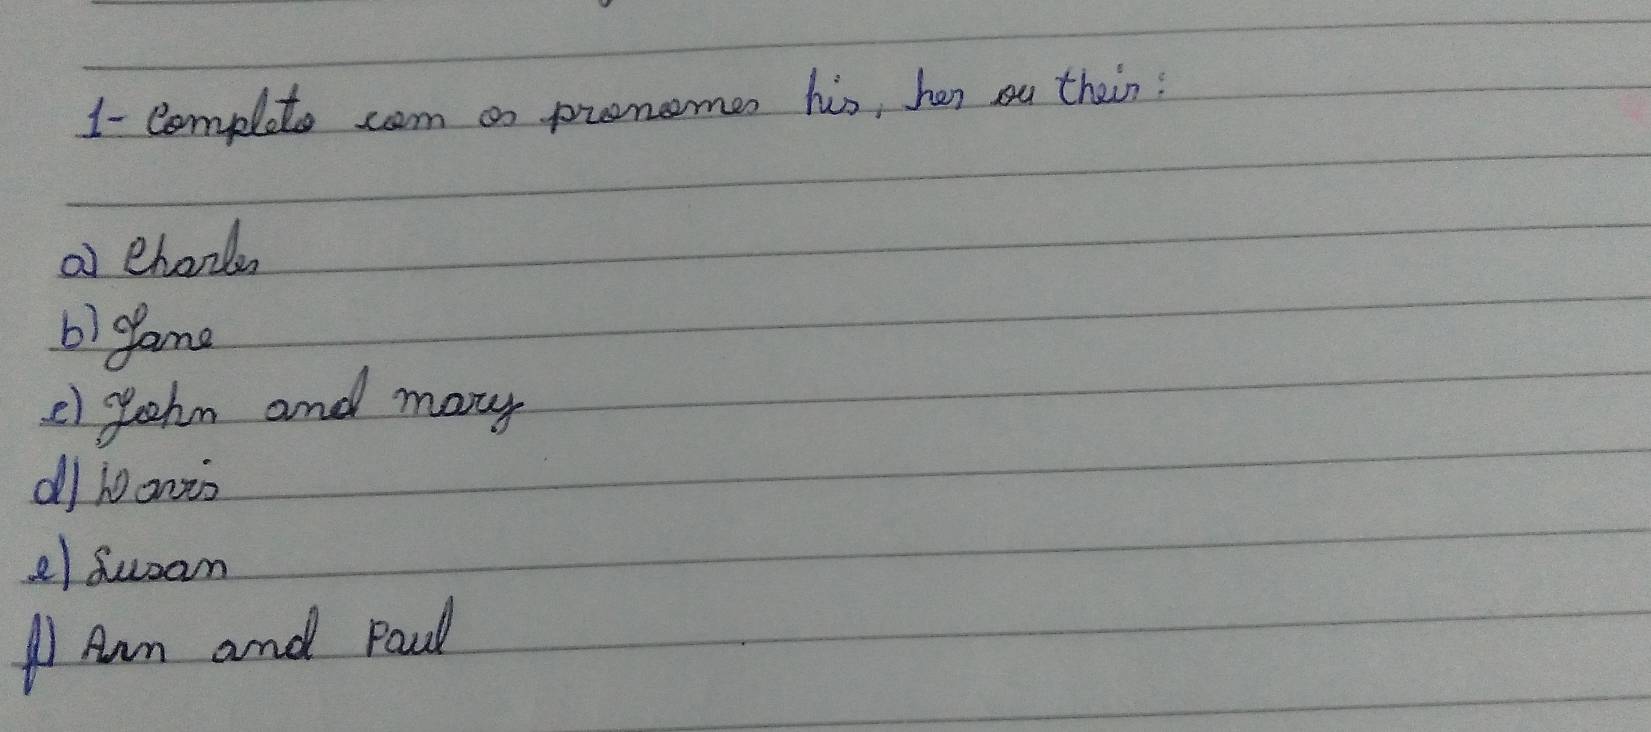 1- Complete com os pronomes his, her ou their:
a) Charles
b) Jane
c) John and mary
d) Davis
e) Susan
f) Ann and Paul